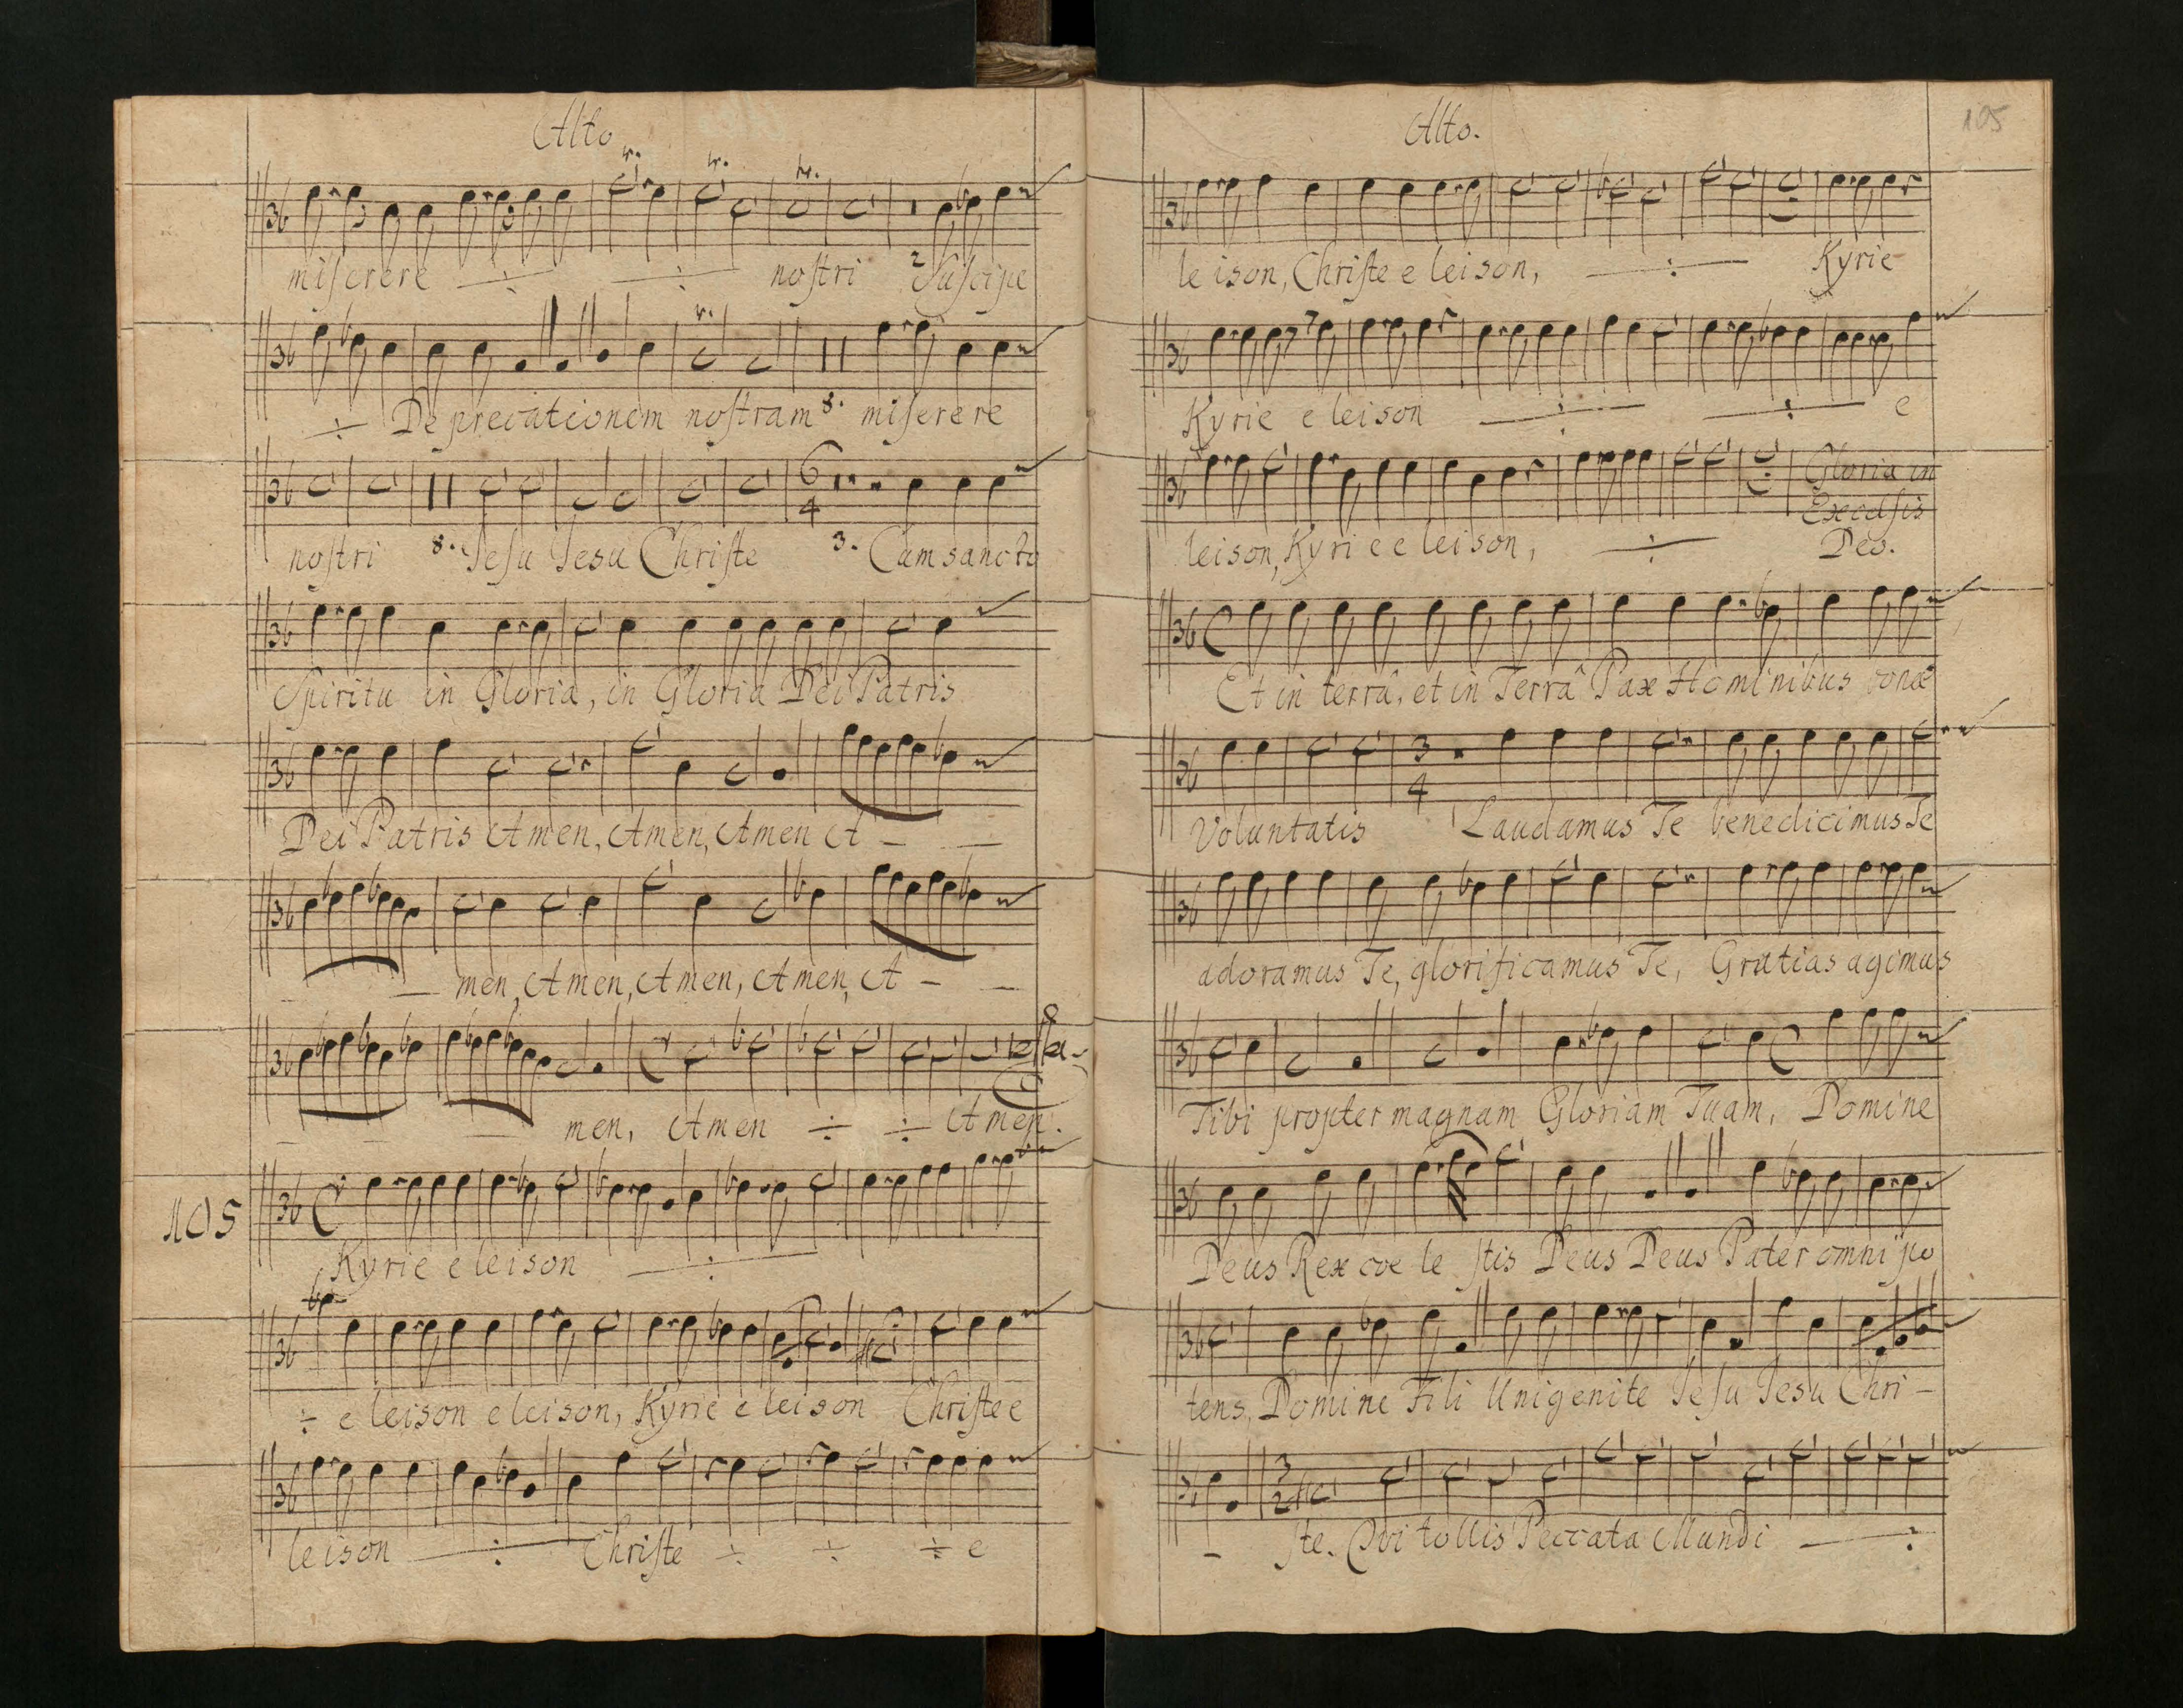 Alto
miserere ÷ ÷ nostri 2 Suscipe
÷ Deprecationem nostram 8. miserere
6
4
nostri 8. Jesu Jesu Christe 3. Cum sancto
Spiritu in Gloria, in Gloria Dei Patris
Dei Patris Amen, Amen, Amen A - -
- - men, Amen, Amen, Amen, A - -
- - - men, Amen ÷ ÷ Amen.
105
Kyrie eleison ÷
÷ eleison eleison, Kyrie eleison Christe e
leison ÷ Christe ÷ ÷ ÷ e
Alto.
105
leison, Christe eleison, ÷ Kyrie
Kyrie eleison ÷ ÷ e
Gloria in
Excelsis
leison, Kyrie eleison, ÷ Deo.
Et in terrâ, et in Terrâ Pax Hominibus bonæ
3
4
Voluntatis Laudamus Te benedicimus Te
adoramus Te, glorificamus Te, Gratias agimus
Tibi propter magnam Gloriam Tuam, Domine
Deus Rex coelestis Deus Deus Pater omnipo
tens, Domine Fili Unigenite Jesu Jesu Chri -
3
2
- ste. Qvi tollis Peccata Mundi ÷